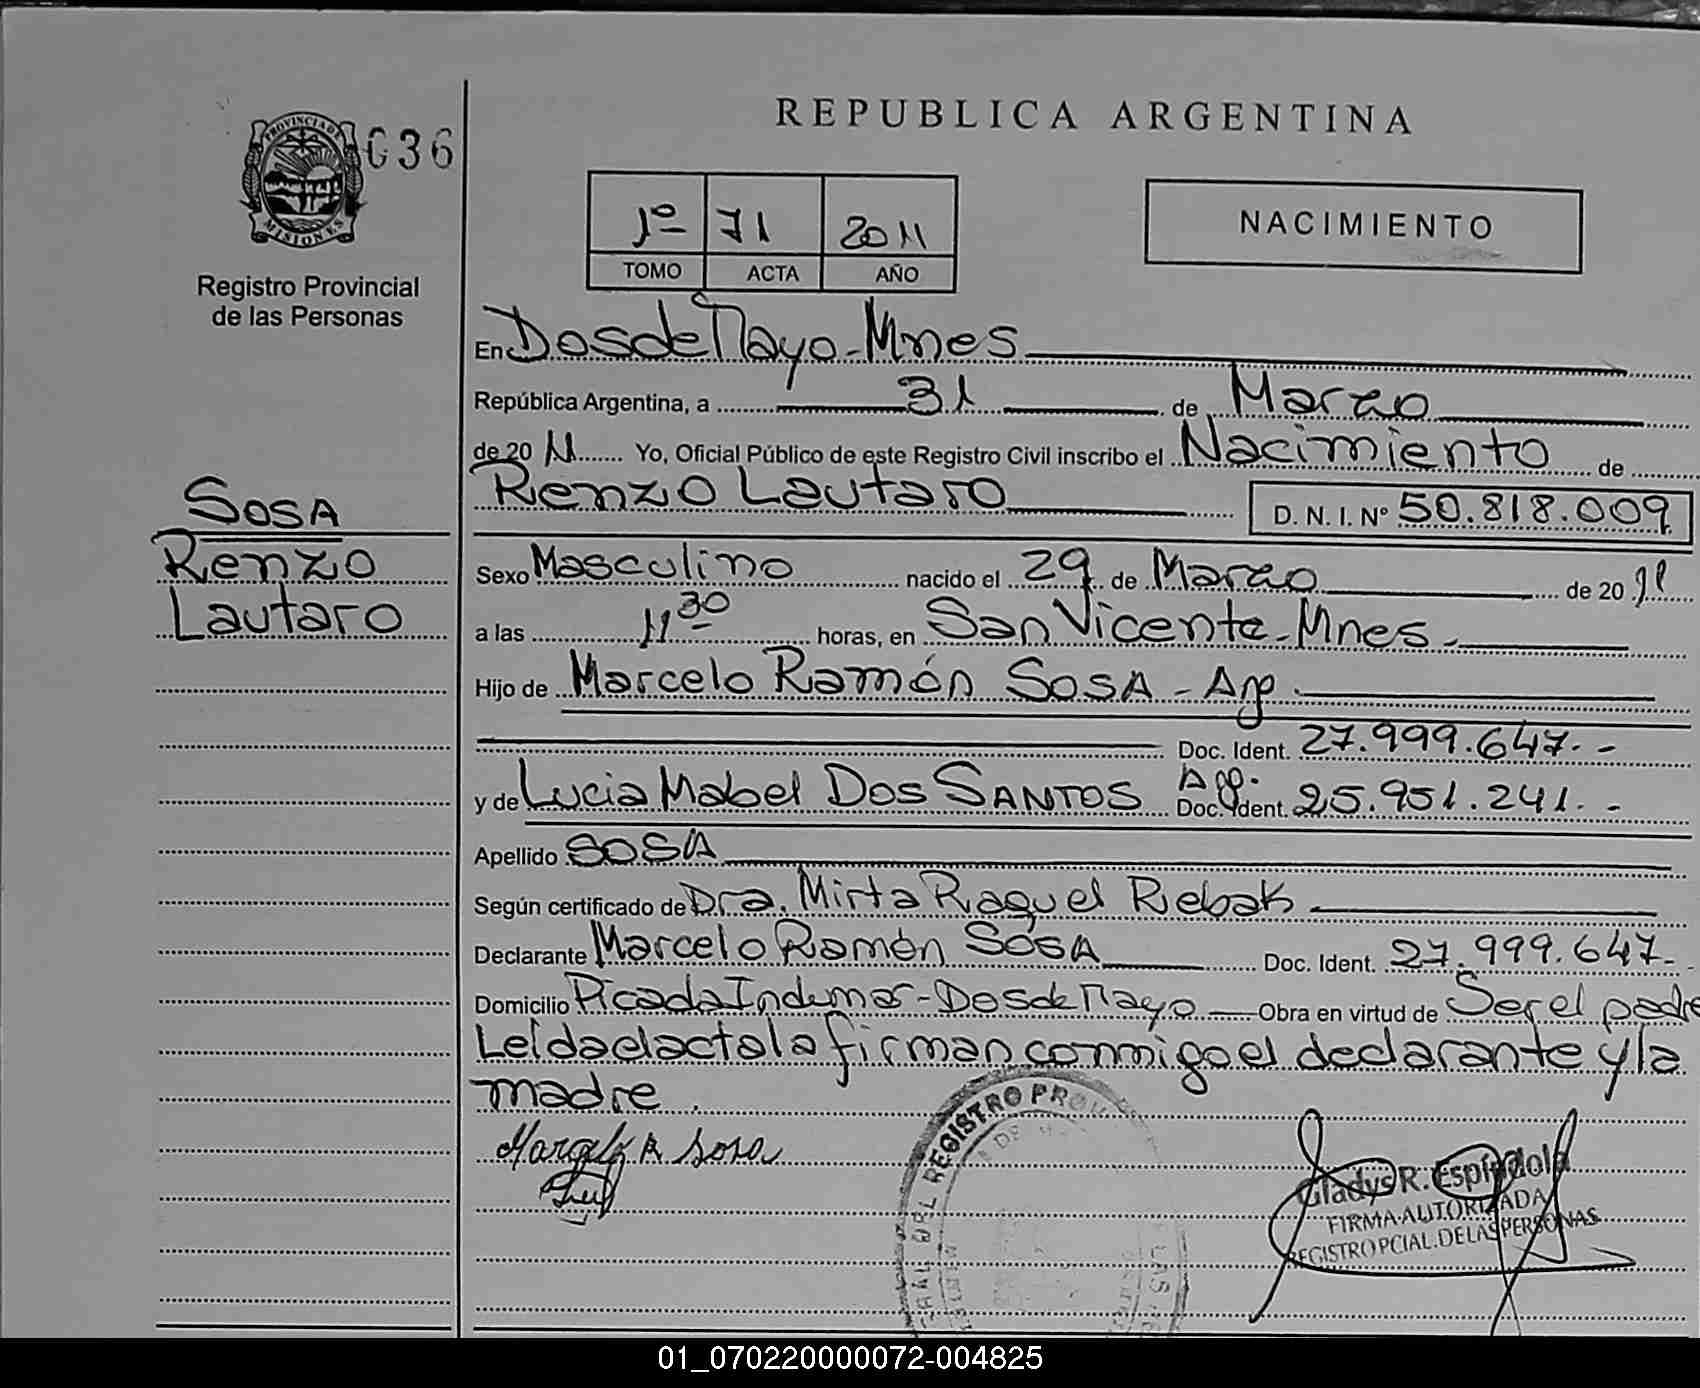 REPUBLICA ARGENTINA
PROVINCIA DE MISIONES
036
Registro Provincial
de las Personas
1º 71 2011
TOMO ACTA AÑO
NACIMIENTO
En Dos de Mayo - Mnes
República Argentina, a 31 de Marzo
de 20 11 Yo, Oficial Público de este Registro Civil inscribo el Nacimiento de
Renzo Lautaro D. N. I. Nº 50.818.009
SOSA
Renzo
Lautaro
Sexo Masculino nacido el 29 de Marzo de 20 11
a las 11 30 horas, en San Vicente - Mnes.
Hijo de Marcelo Ramón SOSA - Arg.
Doc. Ident. 27.999.647.-
y de Lucia Mabel DOS SANTOS Arg. Doc. Ident. 25.951.241.-
Apellido SOSA
Según certificado de Dra. Mirta Raquel Rebak
Declarante Marcelo Ramón SOSA Doc. Ident. 27.999.647.-
Domicilio Picada Indumar - Dos de Mayo Obra en virtud de Ser el padre
Leída el acta la firman conmigo el declarante y la
madre.
Sosa
REGISTRO PRO
Gladys R. Espíndola
FIRMA AUTORIZADA
REGISTRO PCIAL. DE LAS PERSONAS
01_070220000072-004825